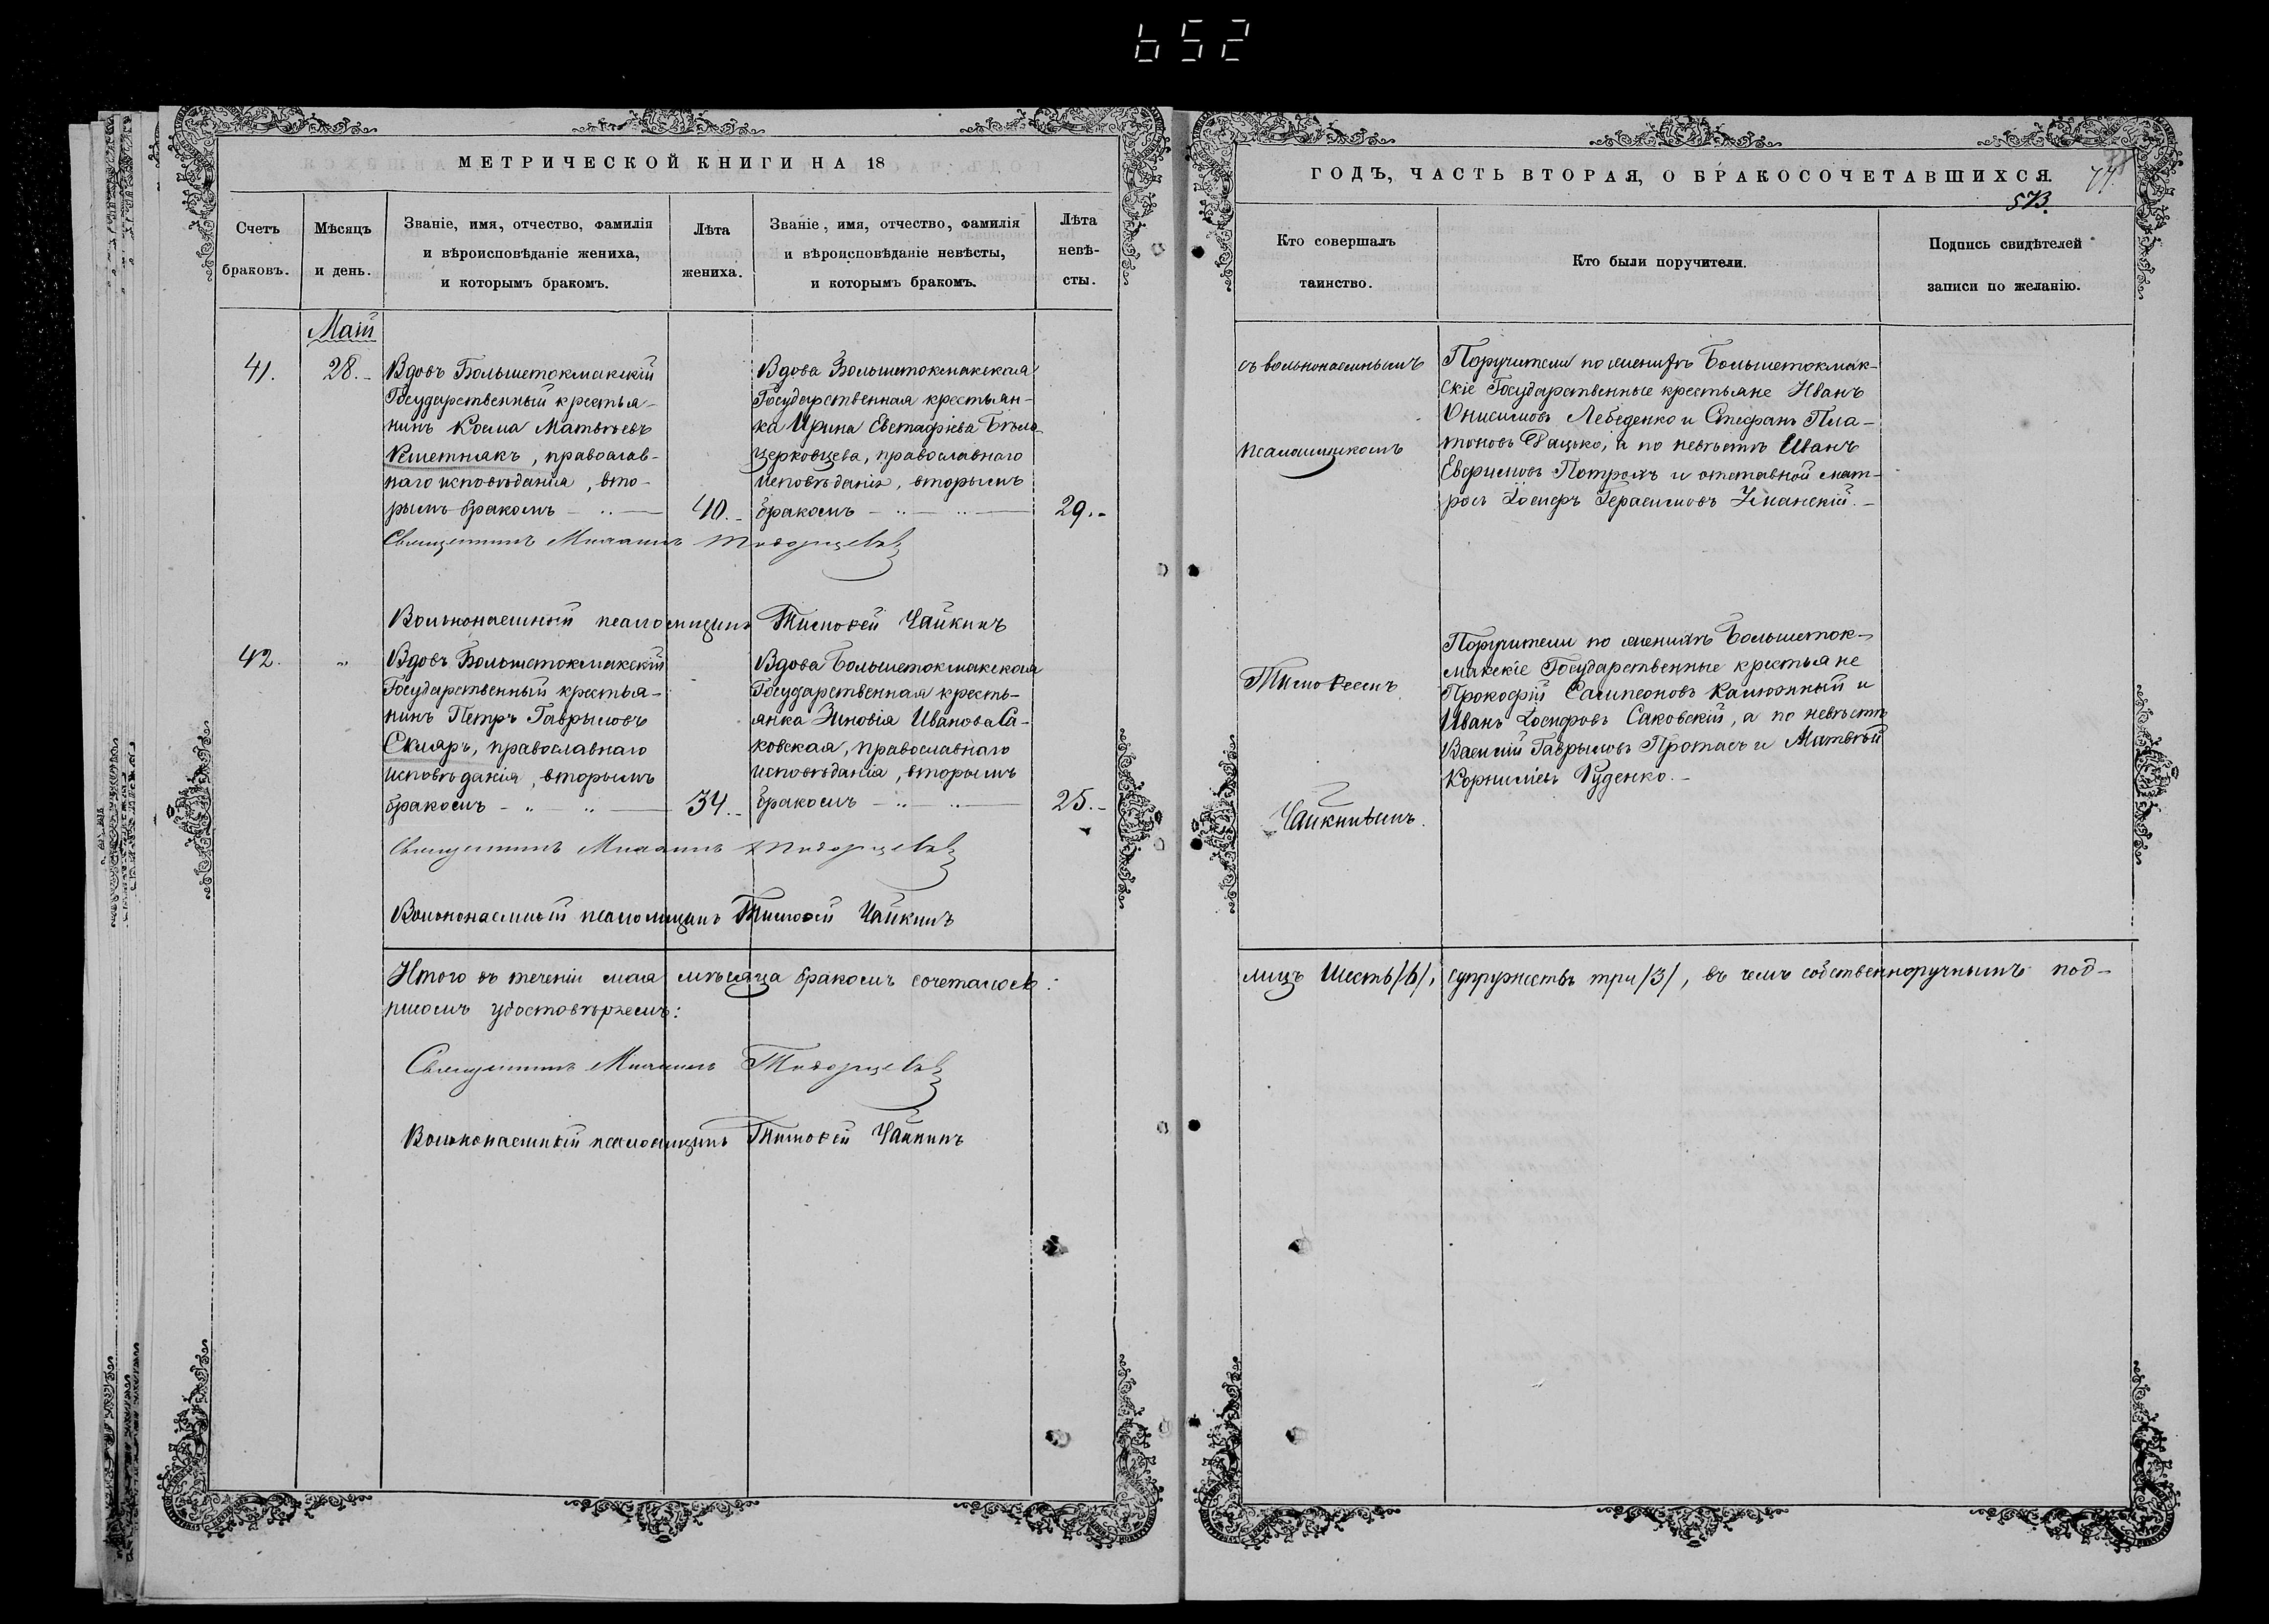 652
МЕТРИЧЕСКОЙ КНИГИ НА 18
Счетъ браковъ.
Мѣсяцъ и день.
Званіе, имя, отчество, фамилія
и вѣроисповѣданіе жениха,
и которымъ бракомъ.
Лѣта жениха.
Званіе, имя, отчество, фамилія
и вѣроисповѣданіе невѣсты,
и которымъ бракомъ.
Лѣта невѣ-
сты.
Маій
41.
28.-
Вдовъ Большетокмакскій
Государственный крестья-
нинъ Косма Матвѣевъ
Решетнякъ, православ-
наго исповѣданія, вто-
рымъ бракомъ
40.-
Вдова Большетокмакская
Государственная крестьян-
ка Ирина Евстафіева Бѣло-
церковцева, православнаго
исповѣданія, вторымъ
бракомъ
29.-
Священникъ Михаилъ
Вольнонаемный псаломщикъ Тимоѳей Чайкинъ
42.
"
Вдовъ Большетокмакскій
Государственный крестья-
нинъ Петръ Гаврыловъ
Скляръ, православнаго
исповѣданія, вторымъ
бракомъ - " "
34.-
Вдова Большетокмакская
Государственная кресть-
янка Зиновія Иванова Са-
ковская, православнаго
исповѣданія, вторымъ
бракомъ
25.-
Священникъ Михаилъ
Вольнонаемный псаломщикъ Тимоѳей Чайкинъ
Итого въ теченіи мая мѣсяца бракомъ сочеталось:
писомъ удостовѣряемъ:
Священникъ Михаилъ
Вольнонаемный псаломщикъ Тимоѳей Чайкинъ
ГОДЪ, ЧАСТЬ ВТОРАЯ, О БРАКОСОЧЕТАВШИХСЯ.
573.
Кто совершалъ
таинство.
Кто были поручители.
Подпись свидѣтелей
записи по желанію.
съ вольнонаемнымъ
псаломщикомъ
Поручители по женихѣ Большетокмак-
скіе Государственные крестьяне Иванъ
Онисимовъ Лебеденко и Стефанъ Пла-
тоновъ Фацько, а по невѣстѣ Иванъ
Евфимовъ и отставной мат-
росъ Іосифъ Герасимовъ Уманскій.-
Тимоѳеемъ
Чайкинымъ.
Поручители по женихѣ Большеток-
макскіе Государственные крестьяне
Прокофій Сампсоновъ Калюжный и
Иванъ Іосифовъ Саковскій, а по невѣстѣ
Василій Гаврыловъ Протасъ и Матвѣй
Корниліевъ Руденко.-
лицъ шесть /6/, супружествъ три /3/, въ чемъ собственноручнымъ под-